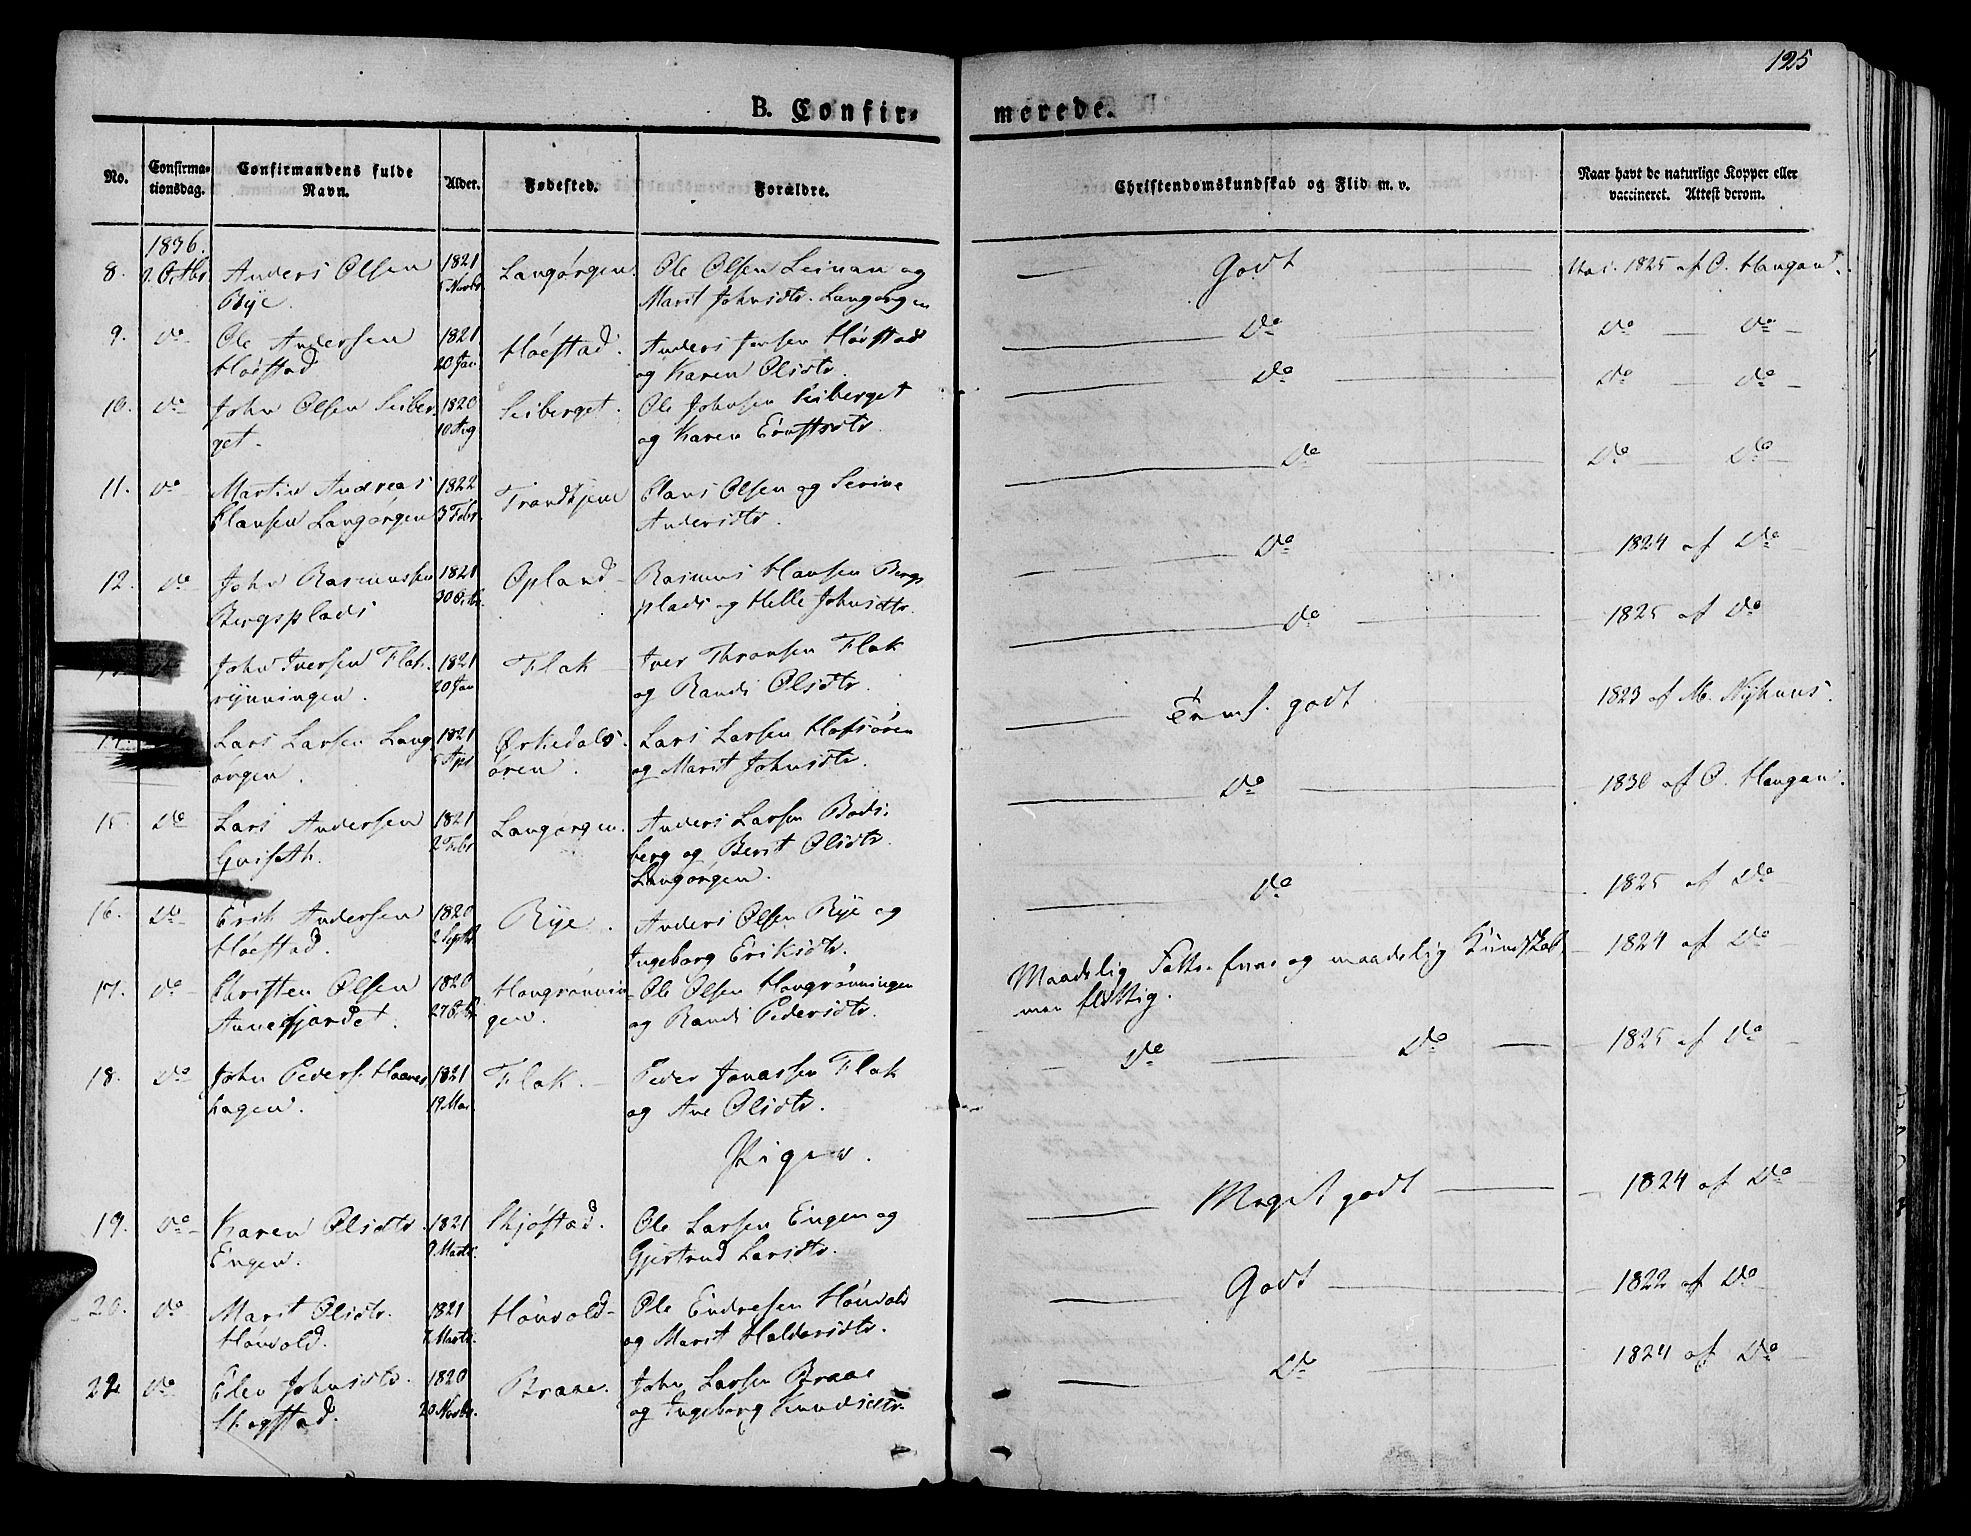 125
B. Confirmerede.
No. Confirmationsdag. Confirmandens fulde Navn. Alder. Fødested. Forældre. Christendomskundskab og Flid m. v. Naar havt de naturlige Kopper eller vaccineret. Attest derom.
1836.
8. 2. Octbr Anders Olsen Rye. 1821 Novbr Langørgen. Ole Olsen Leinan og Marit Johnsdtr. Langørgen Godt 1825 af O. Haugan.
9. Do Ole Andersen Høestad 1821 20 Jan Høestad. Anders Jensen Høestad og Karen Olsdtr. Do Do Do
10. Do John Olsen Leiberget. 1820 10 Aug Leiberget. Ole Johnsen Leiberget og Karen Ernstsdtr. Do Do Do
11. Do Martin Andreas Clausen Langørgen 1822 3 Febr. Trondhjem Claus Olsen og Serine Andersdtr. Do Do Do
12. Do John Rasmussen Bergsplads 1821 30 Octb. Opland Rasmus Hansen Bergsplads og Helle Johnsdtr. Do 1824 af Do
John Iversen Flakrynningen. 1821 20 Jan Flak Iver Thronsen Flak og Randi Olsdtr. Do 1825 af Do
14. Lars Larsen Langørgen. 1821 Apr Ørkedalsøren. Lars Larsen Hofsøren og Marit Johnsdtr. Temml. godt 1823 af M. Nyhuus.
15. Do Lars Andersen Qviseth. 1821 2 Febr Langørgen. Anders Larsen Bodsberg og Berit Olsdtr. Langørgen. Do 1830 af O. Haugan.
16. Do Erik Andersen Høestad. 1820 2 Septbr Rye. Anders Olsen Rye og Ingeborg Eriksdtr. Do 1825 af Do
17. Do Christen Olsen Annefjordet. 1820 27 Oct. Haugrønningen. Ole Olsen Haugrønningen og Randi Pedersdtr. Maadelig Fatteevne og maadelig Kundskab, men flittig. 1824 af Do
18. Do John Peders. Haaneshagen. 1821 19 Mai. Flak. Peder Jonassen Flak og Ane Olsdtr. Do Do 1825 af Do
Piger.
19. Do Karen Olsdtr. Engen. 1821 9. Marts. Skjøstad. Ole Larsen Engen og Gjertrud Larsdtr. Meget godt 1824 af Do
20. Do Marit Olsdtr. Høivold. 1821 7. Marts. Høivold Ole Endresen Høivold og Marit Haldorsdtr. Godt 1822 af Do
22. Do Elen Johnsdtr. Skogstad. 1820 20 Novbr. Braae. John Larsen Braae og Ingeborg Knudsdtr. Do 1824 af Do